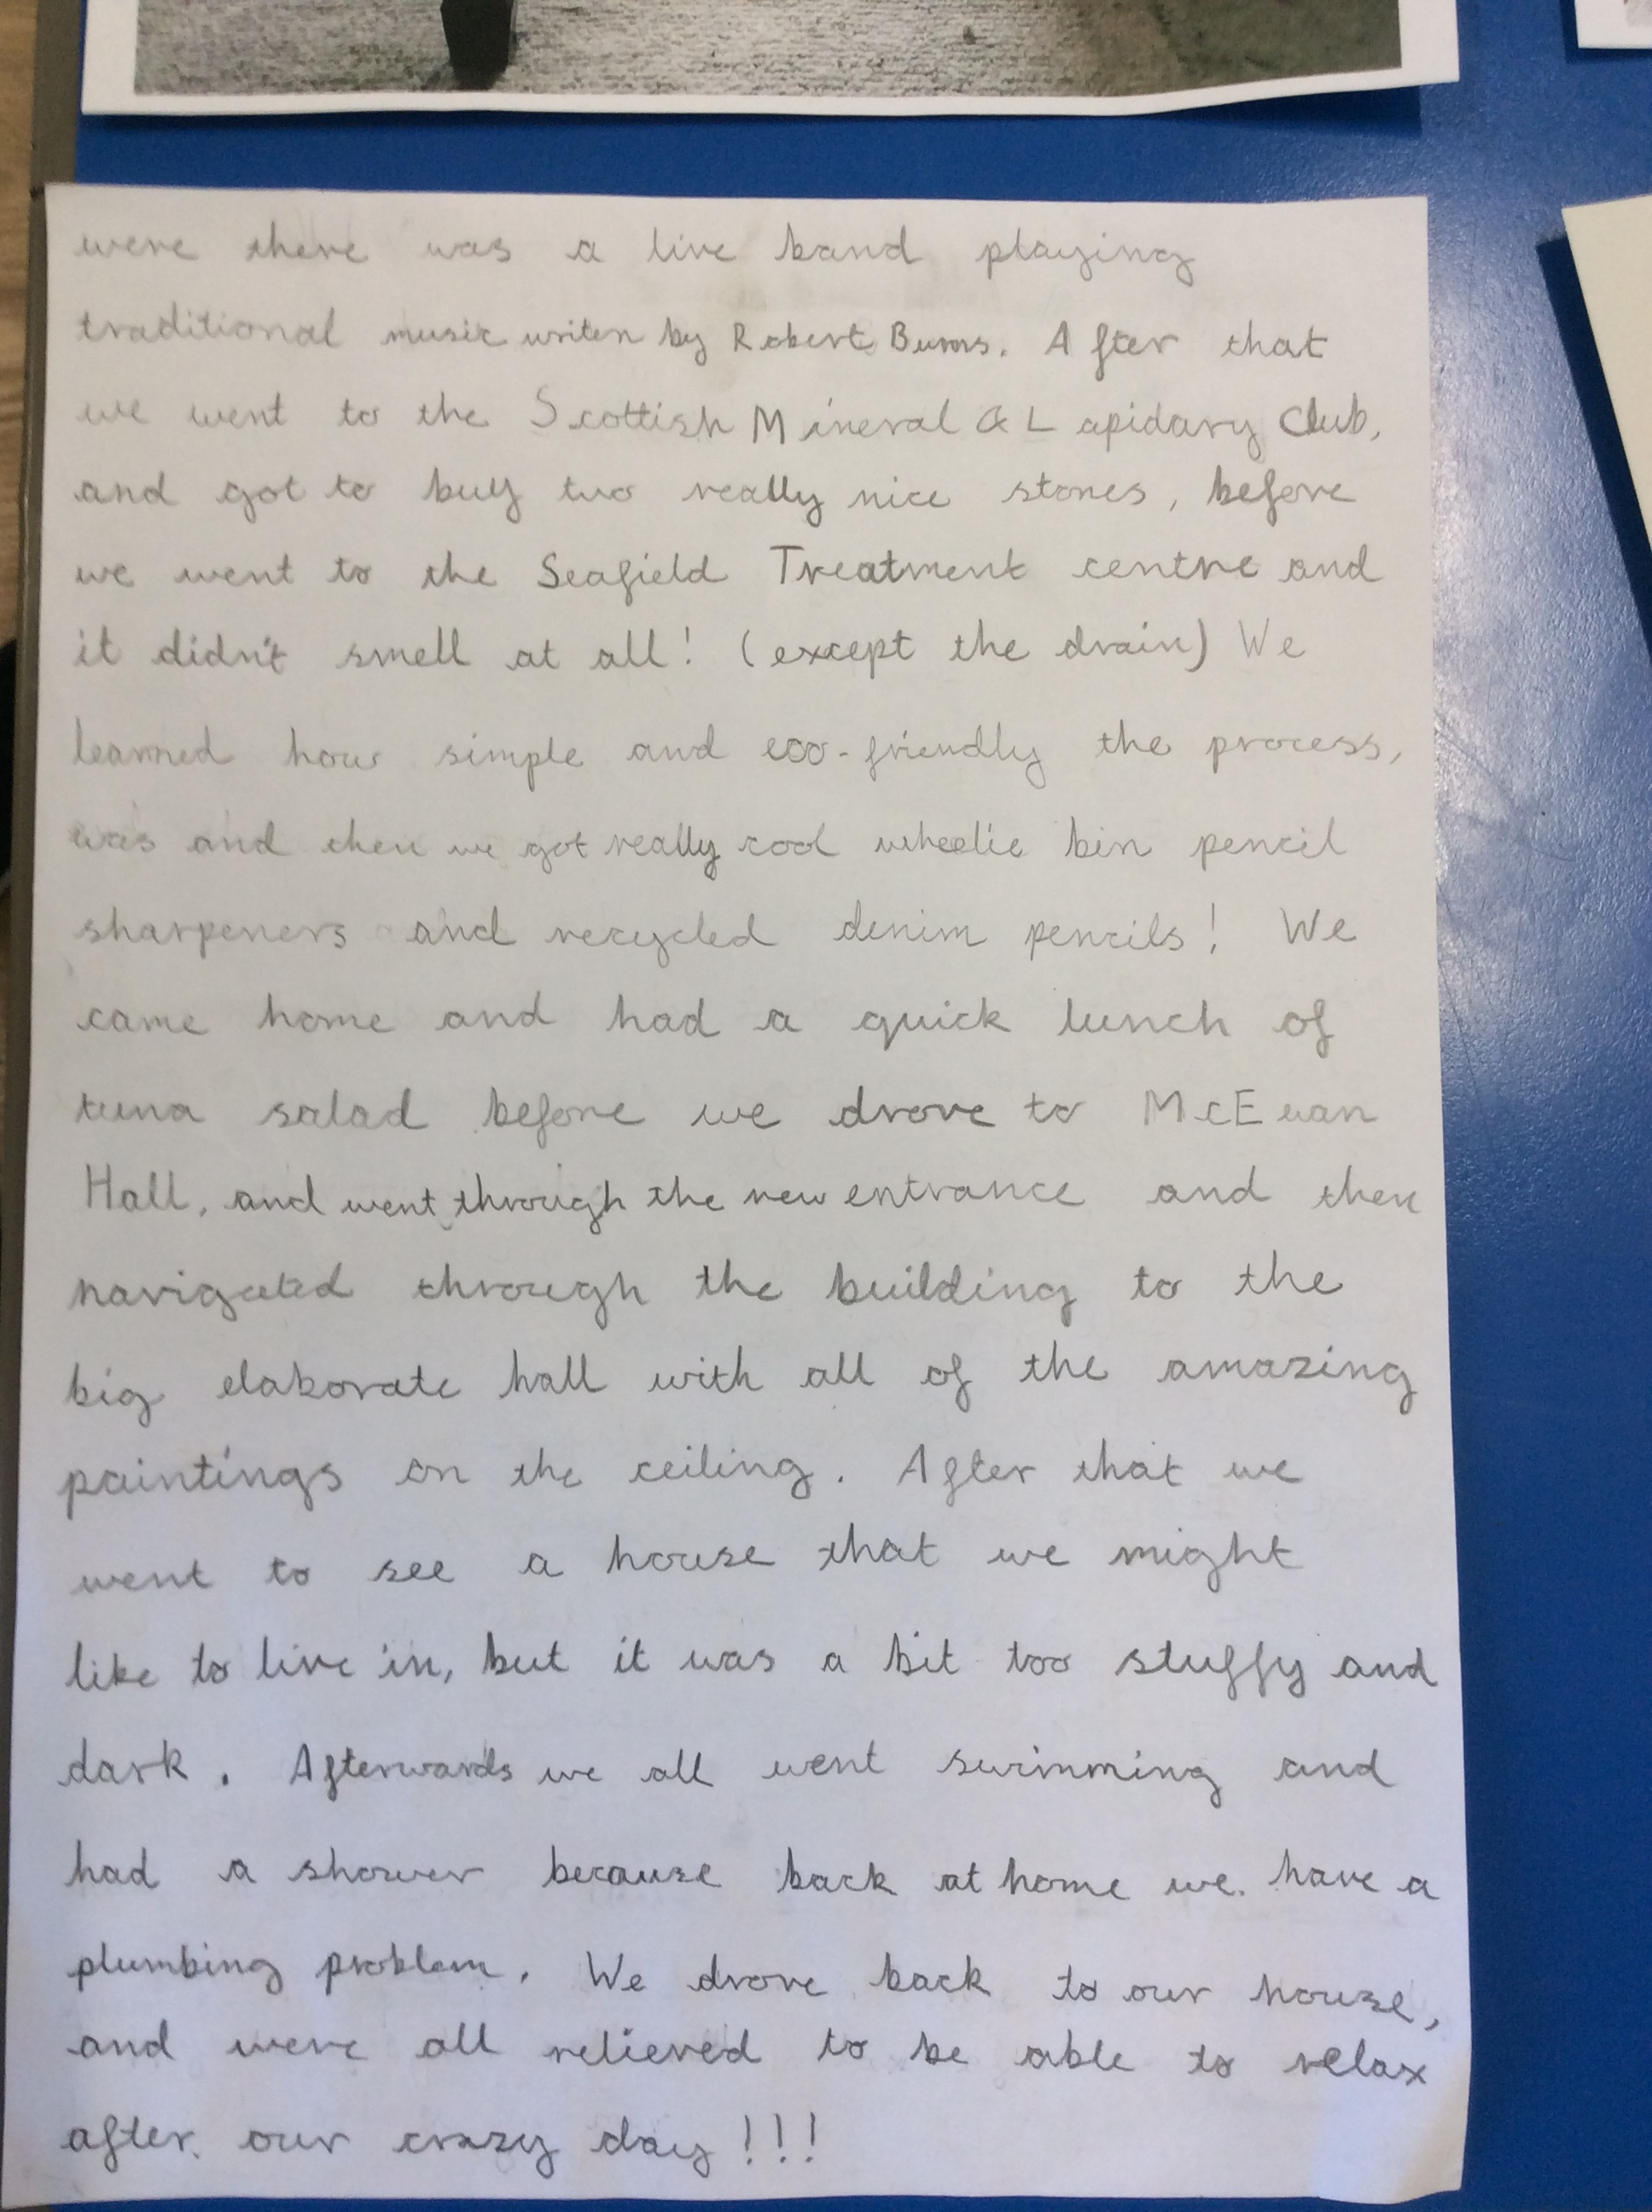 were there was a live band playing
traditional music writen by Robert Burns. After that
we went to the Scottish Mineral & Lapidary Club,
and got to buy two really nice stones, before
we went to the Seafield Treatment centre and
it didn't smell at all! (except the drain) We
learned how simple and eco-friendly the process,
was and then we got really cool wheelie bin pencil
sharpeners and recycled denim pencils! We
came home and had a quick lunch of
tuna salad before we drove to McEwan
Hall, and went through the new entrance and then
navigated through the building to the
big elaborate hall with all of the amazing
paintings on the ceiling. After that we
went to see a house that we might
like to live in, but it was a bit too stuffy and
dark. Afterwards we all went swimming and
had a shower because back at home we have a
plumbing problem. We drove back to our house,
and were all relieved to be able to relax
after our crazy day!!!